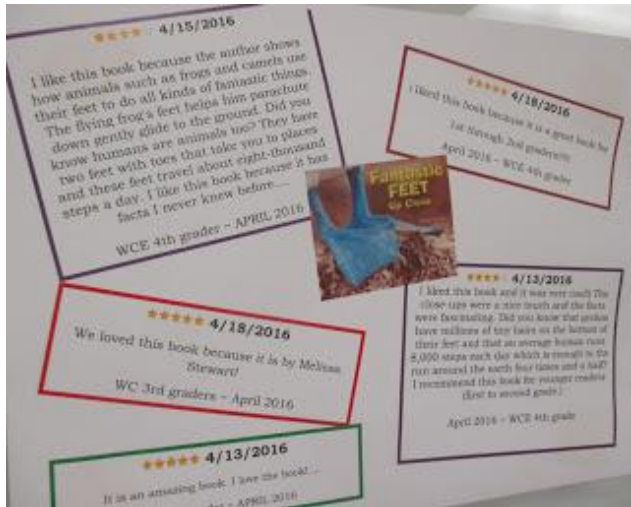 4/15/2016
I like this book because the author shows
how animals such as frogs and camels use
their feet to do all kinds of fantastic things.
The flying frog's feet helps him parachute
down gently glide to the ground. Did you
know humans are animals too? They have
two feet with toes that take you to places
and these feet travel about eight-thousand
steps a day. I like this book because it has
facts I never knew before....
WCE 4th grader ~ APRIL 2016
4/18/2016
I liked this book because it is a great book for
1st through 2nd graders!!!!
April 2016 ~ WCE 4th grader
Fantastic
FEET
Up Close
4/18/2016
We loved this book because it is by Melissa
Stewart!
WC 3rd graders ~ April 2016
4/13/2016
I liked this book and it was very cool! The
close ups were a nice touch and the facts
were fascinating. Did you know that geckos
have millions of tiny hairs on the bottom of
their feet and that an average human runs
8,000 steps each day which is enough to the
run around the earth four times and a half?
I recommend this book for younger readers
(first to second grade.)
April 2016 ~ WCE 4th grade
4/13/2016
It is an amazing book. I love the book!....
~ APRIL 2016